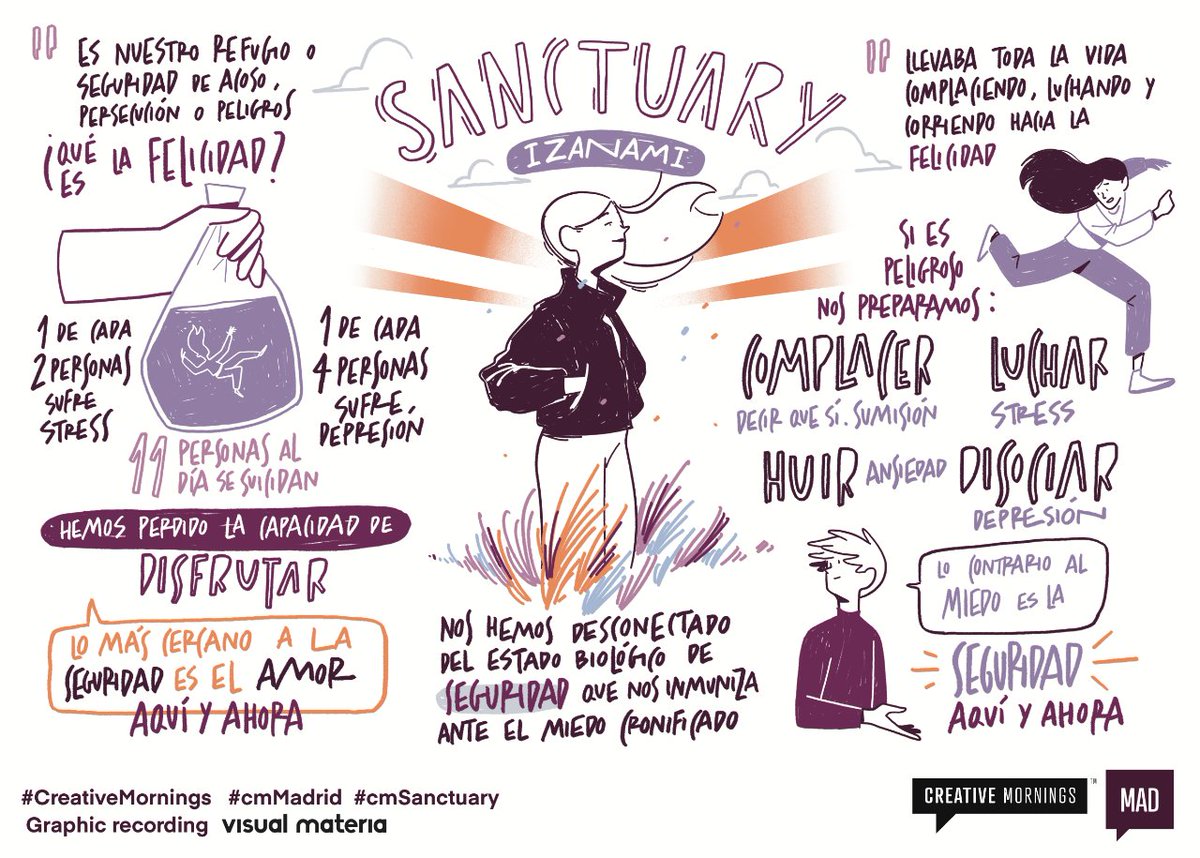 SANCTUARY
IZANAMI
" ES NUESTRO REFUGIO O
SEGURIDAD DE ACOSO,
PERSECUCIÓN O PELIGROS
¿QUÉ ES LA FELICIDAD?
1 DE CADA
2 PERSONAS
SUFRE
STRESS
1 DE CADA
4 PERSONAS
SUFRE,
DEPRESIÓN
11 PERSONAS AL
DÍA SE SUICIDAN
HEMOS PERDIDO LA CAPACIDAD DE
DISFRUTAR
LO MÁS CERCANO A LA
SEGURIDAD ES EL AMOR
AQUÍ Y AHORA
NOS HEMOS DESCONECTADO
DEL ESTADO BIOLÓGICO DE
SEGURIDAD QUE NOS INMUNIZA
ANTE EL MIEDO CRONIFICADO
" LLEVABA TODA LA VIDA
COMPLACIENDO, LUCHANDO Y
CORRIENDO HACIA LA
FELICIDAD
SI ES
PELIGROSO
NOS PREPARAMOS:
COMPLACER
DECIR QUE SÍ. SUMISIÓN
LUCHAR
STRESS
HUIR ANSIEDAD
DISOCIAR
DEPRESIÓN
LO CONTRARIO AL
MIEDO ES LA
SEGURIDAD
AQUÍ Y AHORA
#CreativeMornings #cmMadrid #cmSanctuary
Graphic recording visual materia
CREATIVE MORNINGS™ MAD